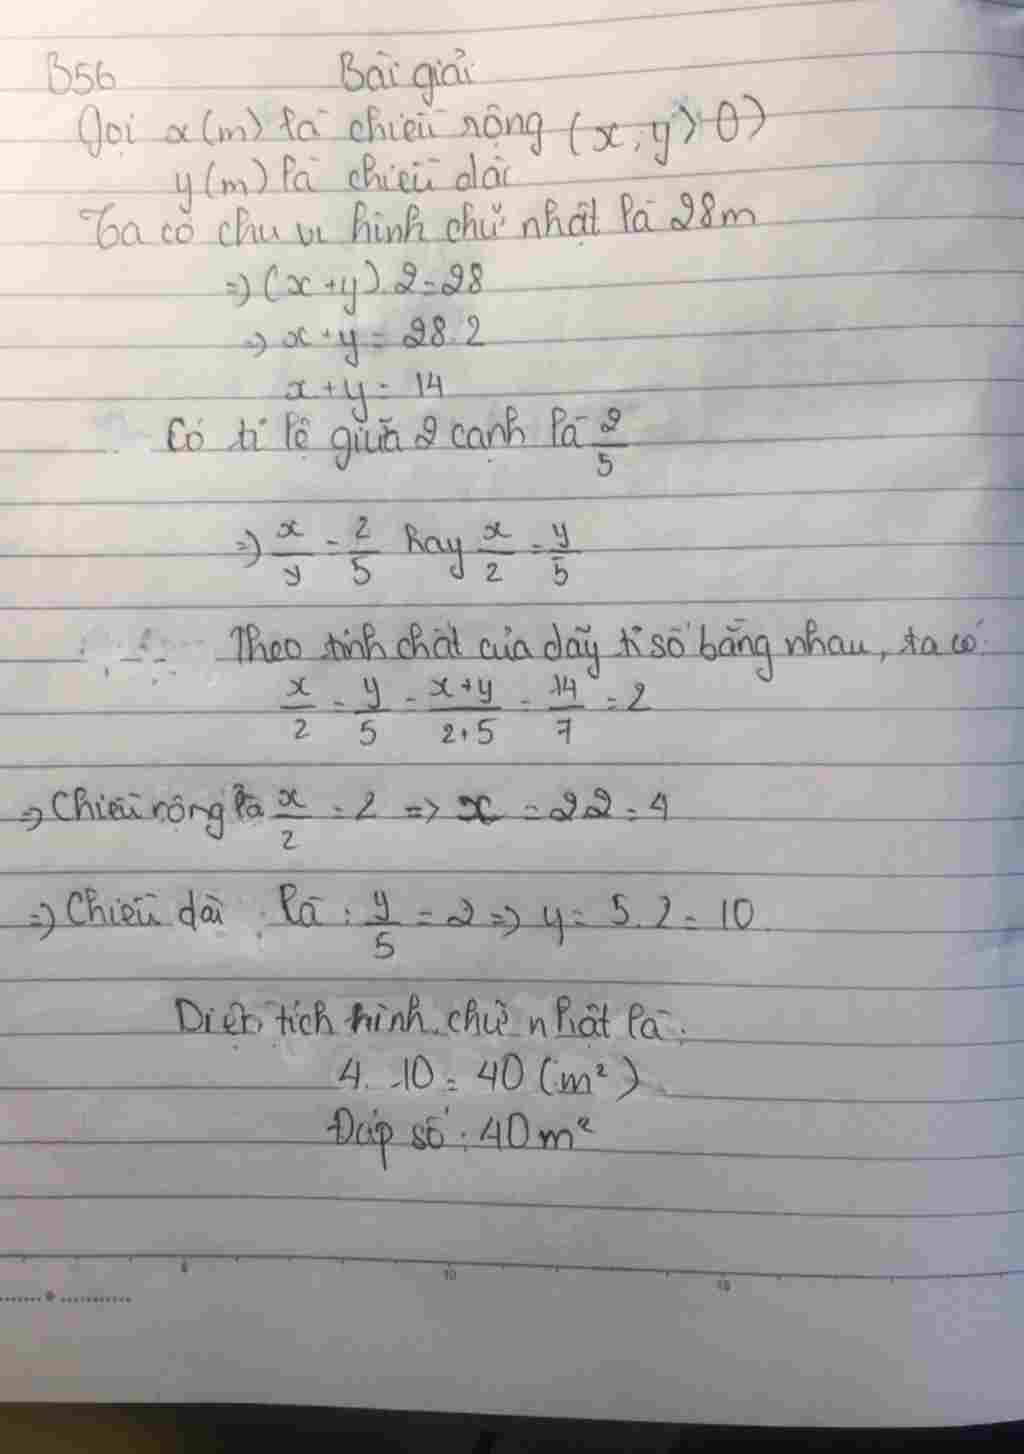 B56 Bài giải
Gọi x(m) là chiều rộng (x; y > 0)
y(m) là chiều dài
Ta có chu vi hình chữ nhật là 28m
=> (x+y).2=28
=> x+y = 28:2
x+y = 14
Có tỉ lệ giữa 2 cạnh là 2/5
=> x/y = 2/5 hay x/2 = y/5
Theo tính chất của dãy tỉ số bằng nhau, ta có:
x/2 = y/5 = x+y/2+5 = 14/7 = 2
=> Chiều rộng là x/2 = 2 => x = 2.2 = 4
=> Chiều dài là : y/5 = 2 => y = 5.2 = 10.
Diện tích hình chữ nhật là:
4.10 = 40 (m²)
Đáp số : 40m²
5 10 15